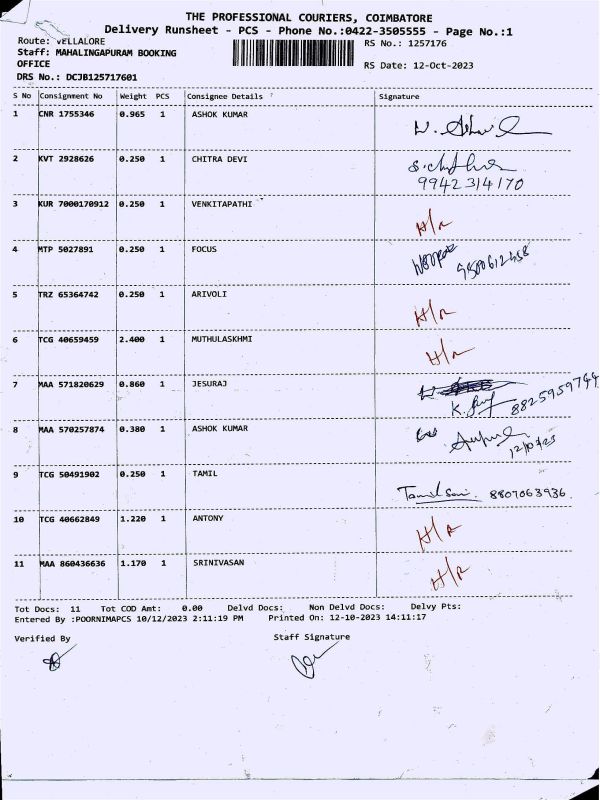 THE PROFESSIONAL COURIERS, COIMBATORE
Delivery Runsheet - PCS - Phone No.:0422-3505555 - Page No.:1
Route: VELLALORE
RS No.: 1257176
Staff: MAHALINGAPURAM BOOKING
OFFICE
RS Date: 12-Oct-2023
DRS No.: DCJB125717601
S No Consignment No Weight PCS Consignee Details Signature
1 CNR 1755346 0.965 1 ASHOK KUMAR
2 KVT 2928626 0.250 1 CHITRA DEVI
9942314170
3 KUR 7000170912 0.250 1 VENKITAPATHI H/R
4 MTP 5027891 0.250 1 FOCUS
5 TRZ 65364742 0.250 1 ARIVOLI H/R
6 TCG 40659459 2.400 1 MUTHULASKHMI H/R
7 MAA 571820629 0.860 1 JESURAJ
8825959744
8 MAA 570257874 0.380 1 ASHOK KUMAR
12/10/23
9 TCG 50491902 0.250 1 TAMIL
8807063936
10 TCG 40662849 1.220 1 ANTONY H/R
11 MAA 860436636 1.170 1 SRINIVASAN H/R
Tot Docs: 11 Tot COD Amt: 0.00 Delvd Docs: Non Delvd Docs: Delvy Pts:
Entered By :POORNIMAPCS 10/12/2023 2:11:19 PM Printed On: 12-10-2023 14:11:17
Verified By Staff Signature